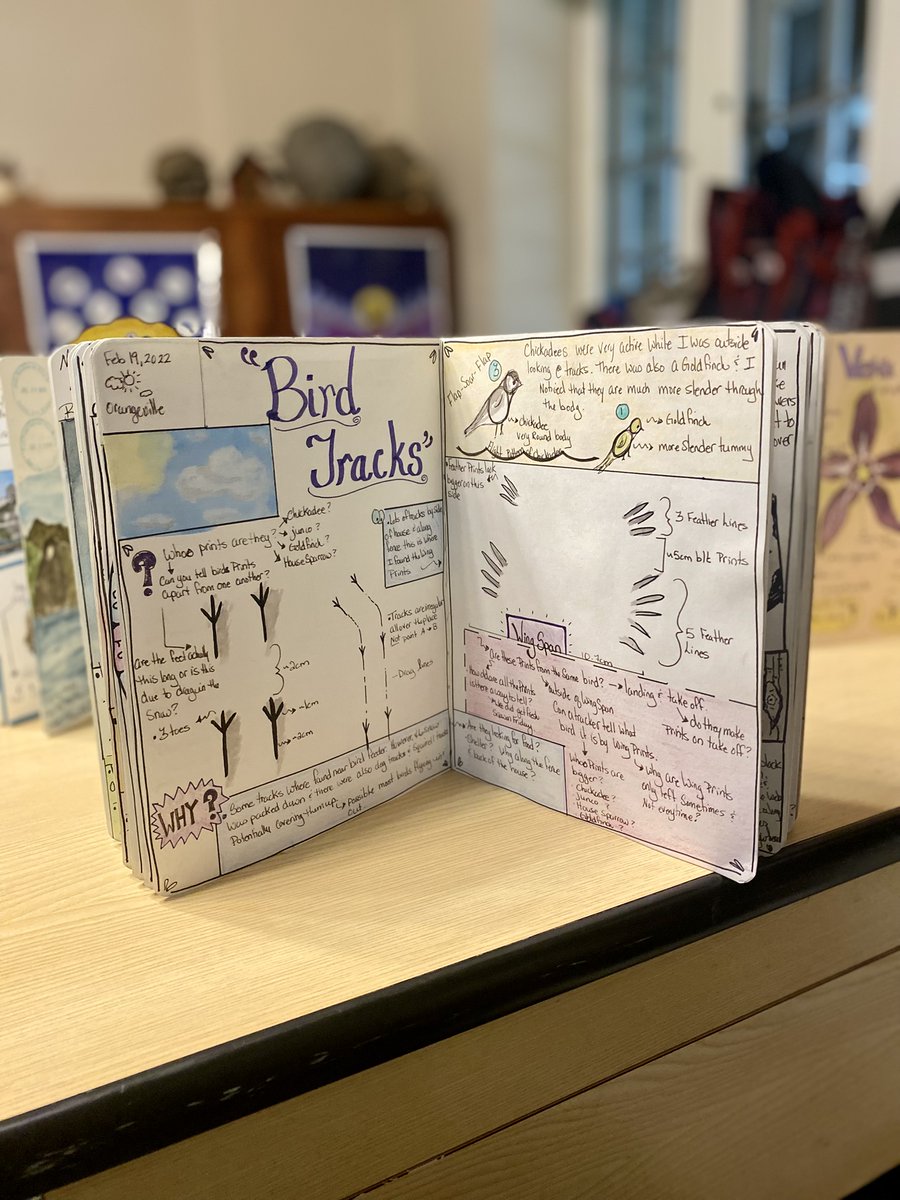 Feb 19, 2022
Orangeville
"Bird
Tracks"
? Whos prints are they?
Chickadee?
junco?
Goldfinch?
House Sparrow?
Can you tell birds Prints
apart from one another?
Lots of tracks by side
of house & along
fence this is where
I found the wing
Prints
are the feet actually
this long or is this
due to drag in the
Snow?
• 3 toes
~2cm
~1cm
~2cm
• Tracks are irregular
all over the place
Not point A → B
- Drag lines
WHY?
Some tracks where found near bird feeder. However, the snow
was packed down & there were also dog tracks & Squirrel tracks
Potentially Covering them up. → possible most birds flying in &
out.
Flap-Soar-Flap
3
Chickadees were very active while I was outside
looking @ tracks. There was also a Goldfinch & I
Noticed that they are much more slender through
the body.
chickadee
very Round body
1
Goldfinch
more Slender tummy
Feather Prints look
bigger on this
side
3 Feather Lines
~5cm btt Prints
5 Feather
Lines
Wing Span
? → are these Prints from the Same bird?
→ landing & take off
→ do they make
Prints on take off?
How old are all the Prints
is there a way to tell?
We did get fresh
Snow on Friday
outside of wing span
Can a tracker tell what
bird it is by Wing Prints.
- Are they looking for food?
- Shelter? Why along the fence
& back of the house?
whos Prints are
bigger?
Chickadee?
junco?
House Sparrow?
Goldfinch?
why are Wing Prints
only left Sometimes &
Not everytime?